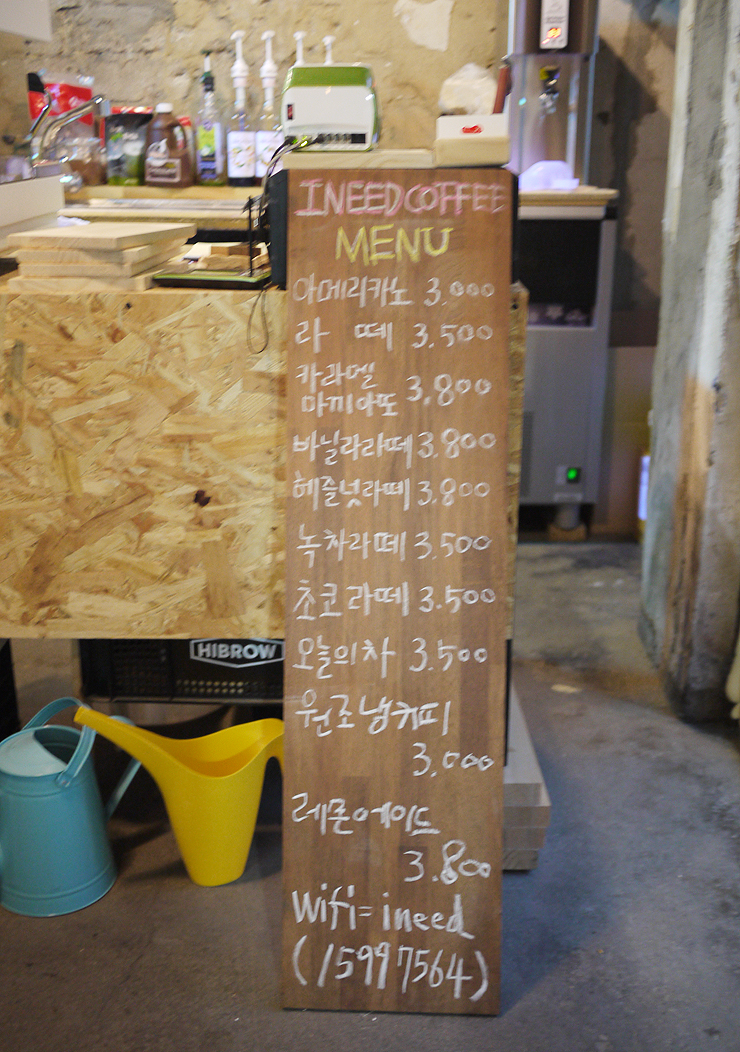 INEED COFFEE
MENU
아메리카노 3.000
라 떼 3.500
카라멜
마끼아또 3.800
바닐라라떼 3.800
헤즐넛라떼 3.800
녹차라떼 3.500
초코라떼 3.500
오늘의차 3.500
원조냉커피
3.000
레몬에이드
3.800
Wifi=ineed
(15997564)
HIBROW